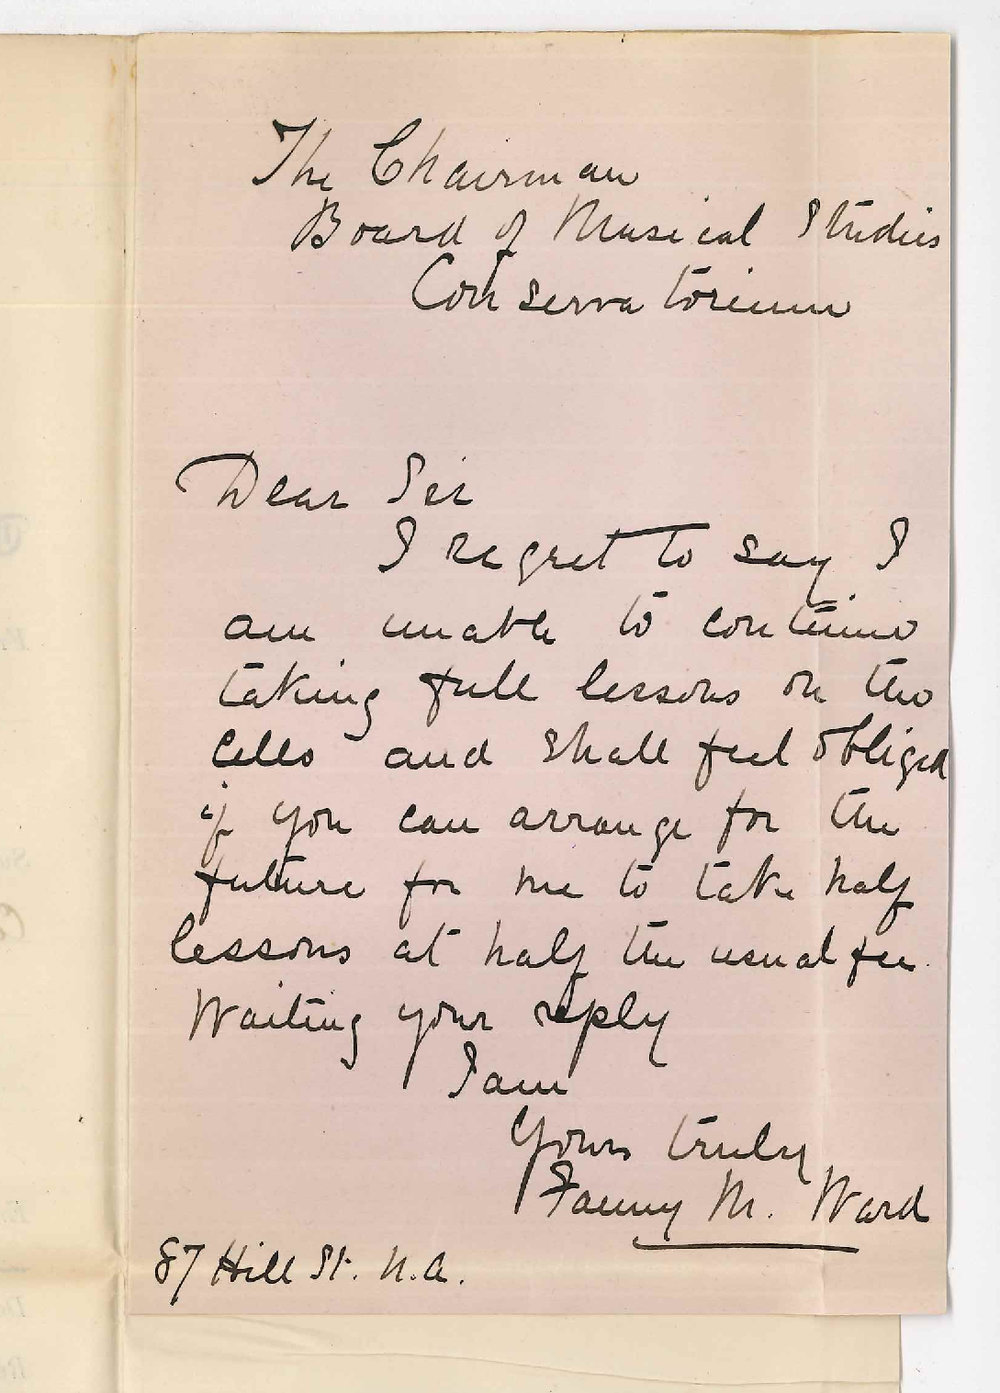 The Chairman
Board of Musical Studies
Conservatorium
Dear Sir
I regret to say I
am unable to continue
taking full lessons on the
Cello and shall feel obliged
if you can arrange for the
future for me to take half
lessons at half the usual fee.
Waiting your reply
I am
Yours truly
Fanny M. Ward
87 Hill St. N.A.